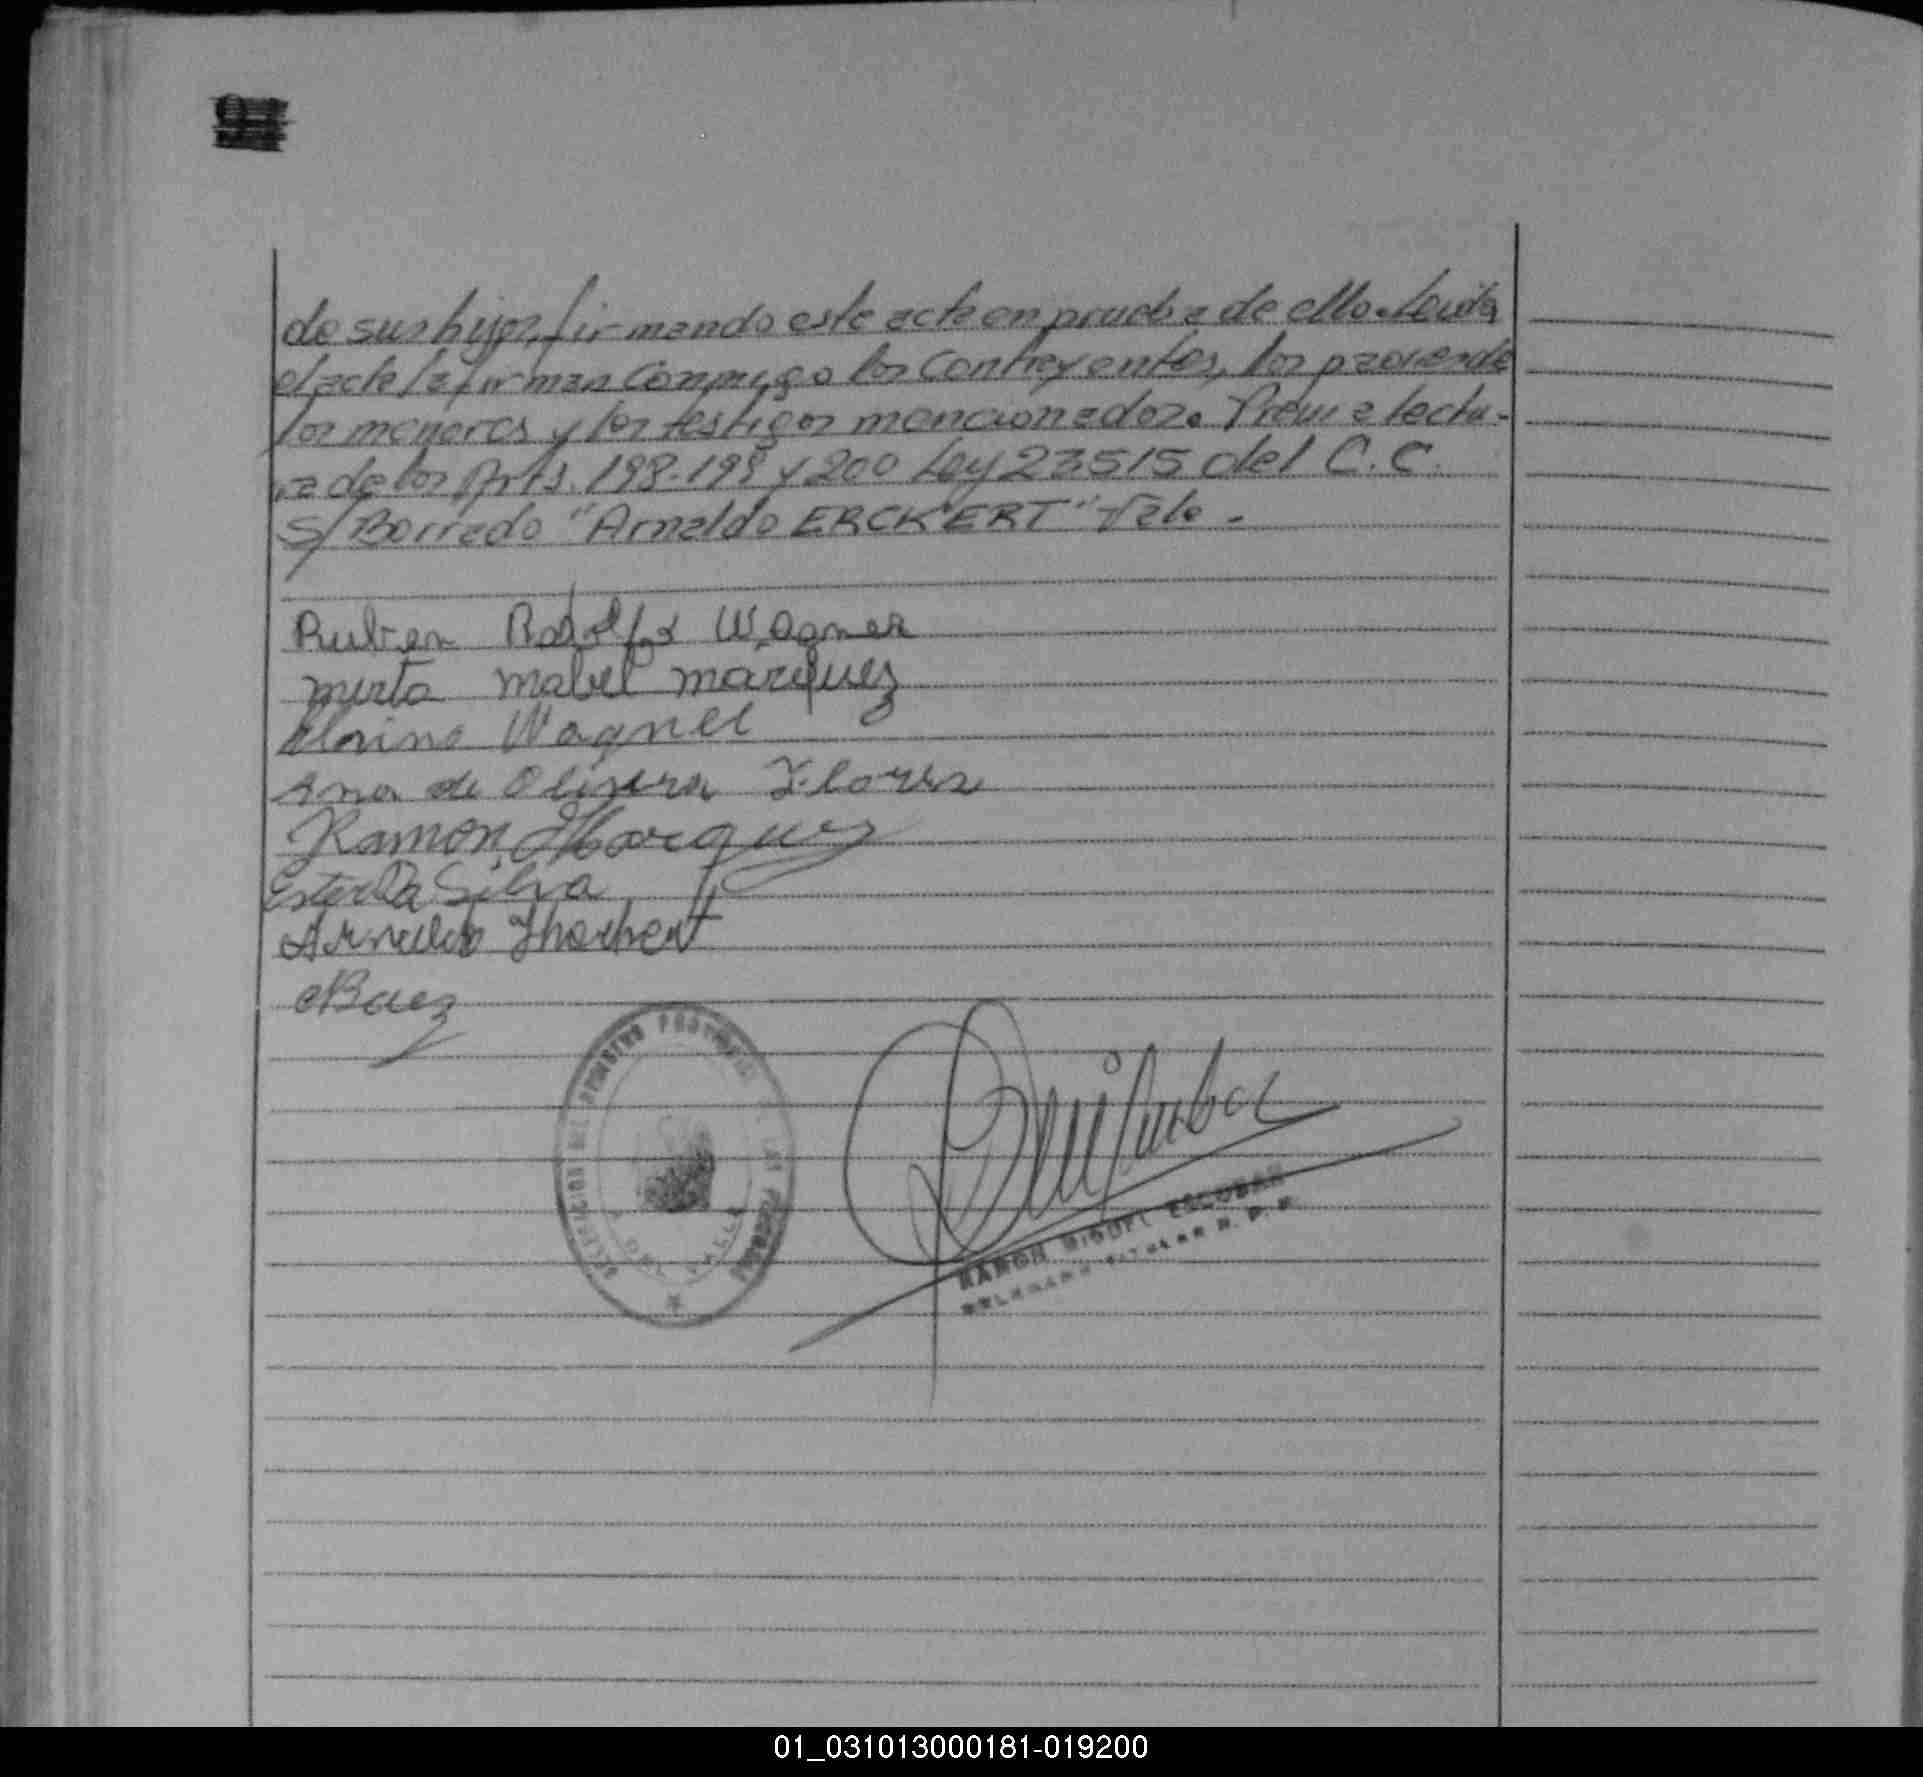 de sus hijos, firmando este acta en prueba de ello. Leida
el acta la firman Conmigo los Contrayentes, los padres de
los menores y los testigos mencionados. Previa lectu-
ra de los Arts. 198-199 y 200 Ley 23515 del C.C.
S/Borrado "Arnaldo ERCKERT" Vale -
Ruben Rodolfo Wagner
mirta mabel marquez
Wagner
Ana de Olivera Flores
Ramon Marquez
Ester Da Silva
Arnaldo
Baez
DELEGACION DEL REGISTRO PROVINCIAL DE LAS PERSONAS
VALLE
RAMON MIGUEL ESCOBAR
DELEGADO TITULAR R. P. P.
01_031013000181-019200